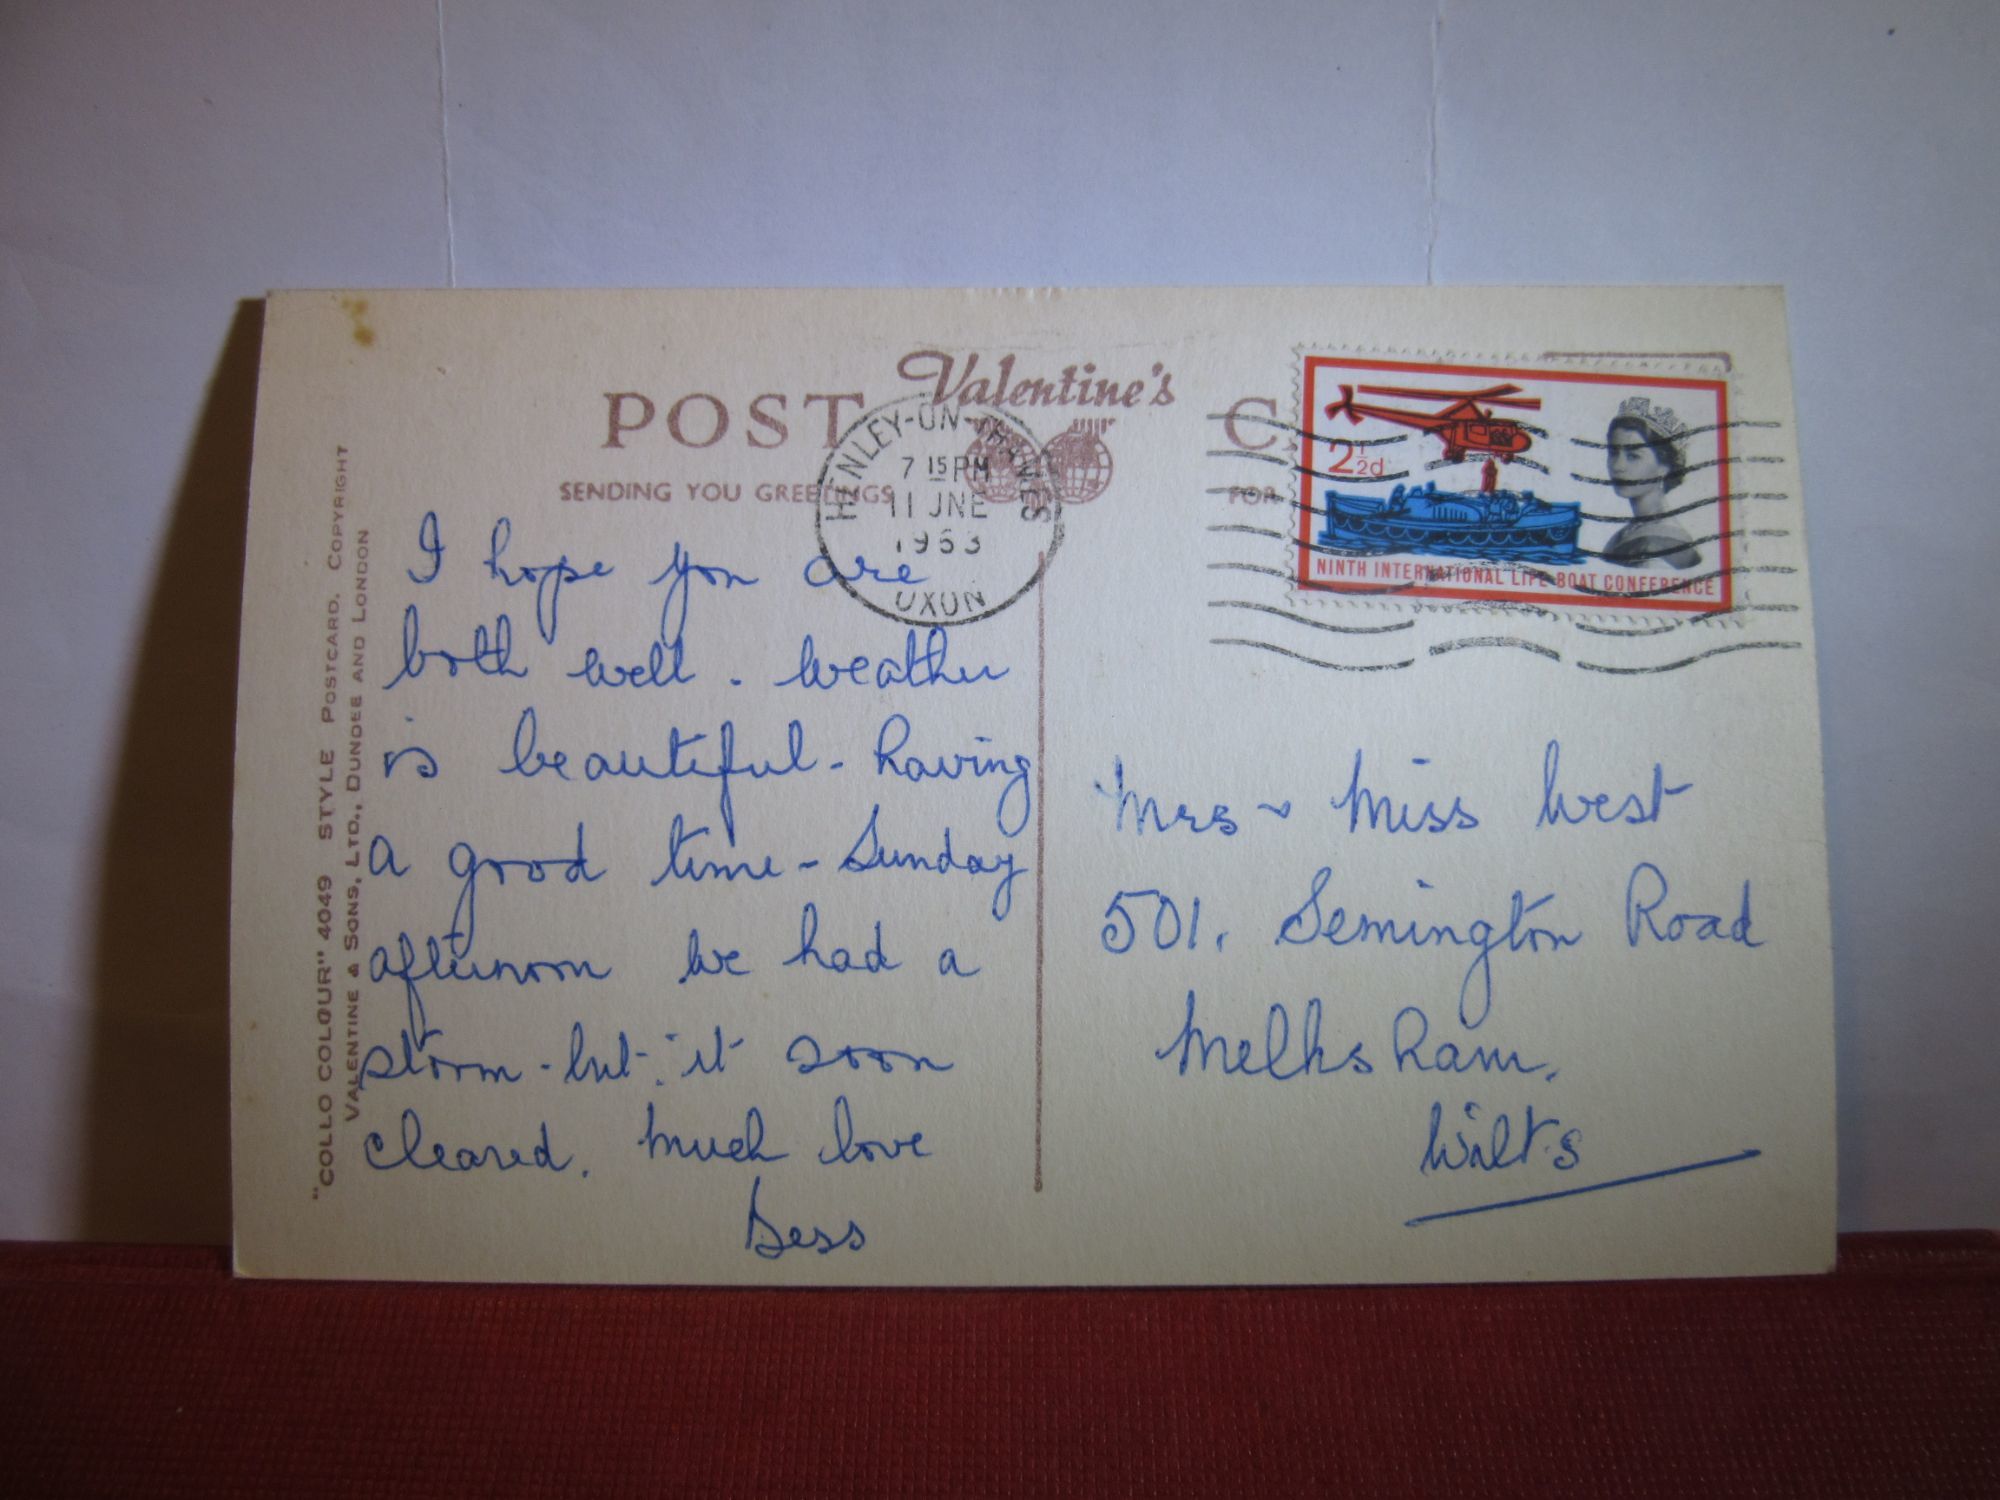 "COLLO COLOUR" 4049 STYLE POSTCARD. COPYRIGHT
VALENTINE & SONS, LTD., DUNDEE AND LONDON
POST
Valentine's
C
SENDING YOU GREETINGS
FOR
HENLEY-ON-THAMES
7 15 PM
11 JNE
1963
OXON
2½d
NINTH INTERNATIONAL LIFE-BOAT CONFERENCE
I hope you are
both well. Weather
is beautiful - having
a good time - Sunday
afternoon we had a
storm - but it soon
cleared. Much love
Bess
Mrs & Miss West
501, Semington Road
Melksham.
Wilts